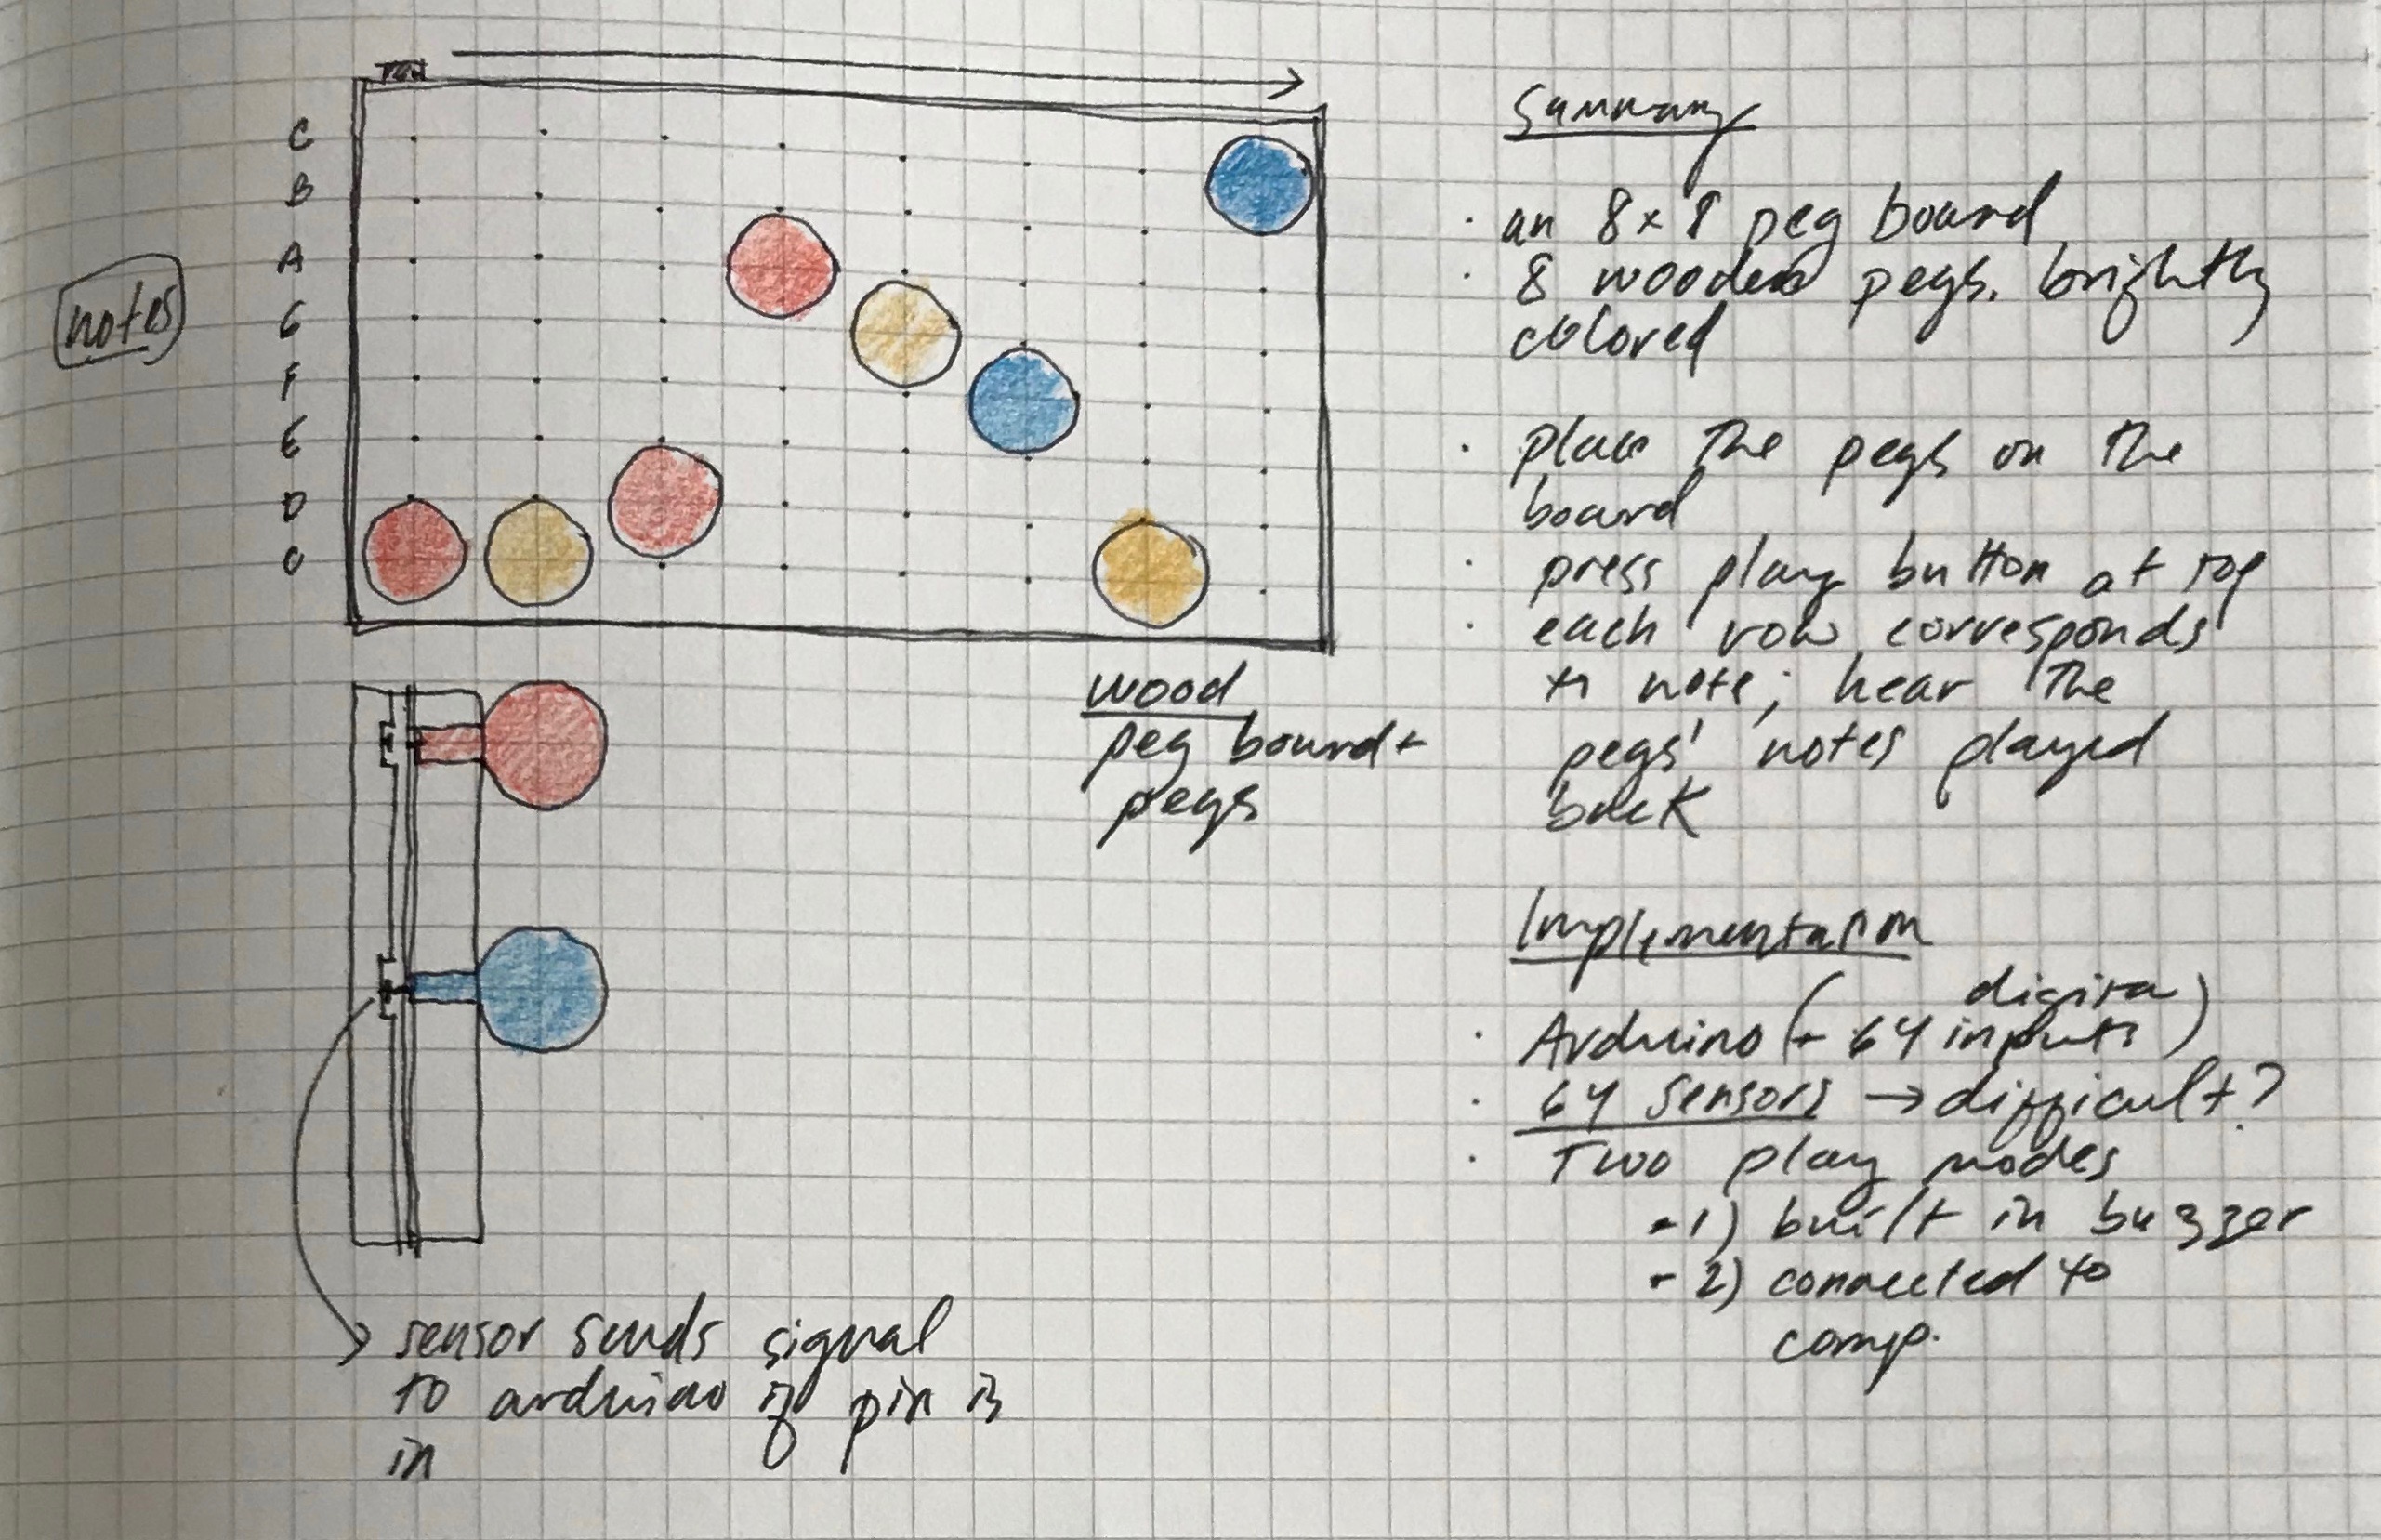 C
B
A
G
F
E
D
C
notes
wood
peg board +
pegs
sensor sends signal
to arduino if pin is
in
Summary
· an 8x8 peg board
· 8 wooden pegs. brightly
colored
· place the pegs on the
board
· press play button at top
· each row corresponds
to note; hear the
pegs' notes played
back
Implementation
· Arduino (+ 64 digital inputs)
· 64 sensors → difficult?
· Two play modes
- 1) built in buzzer
- 2) connected to
comp.